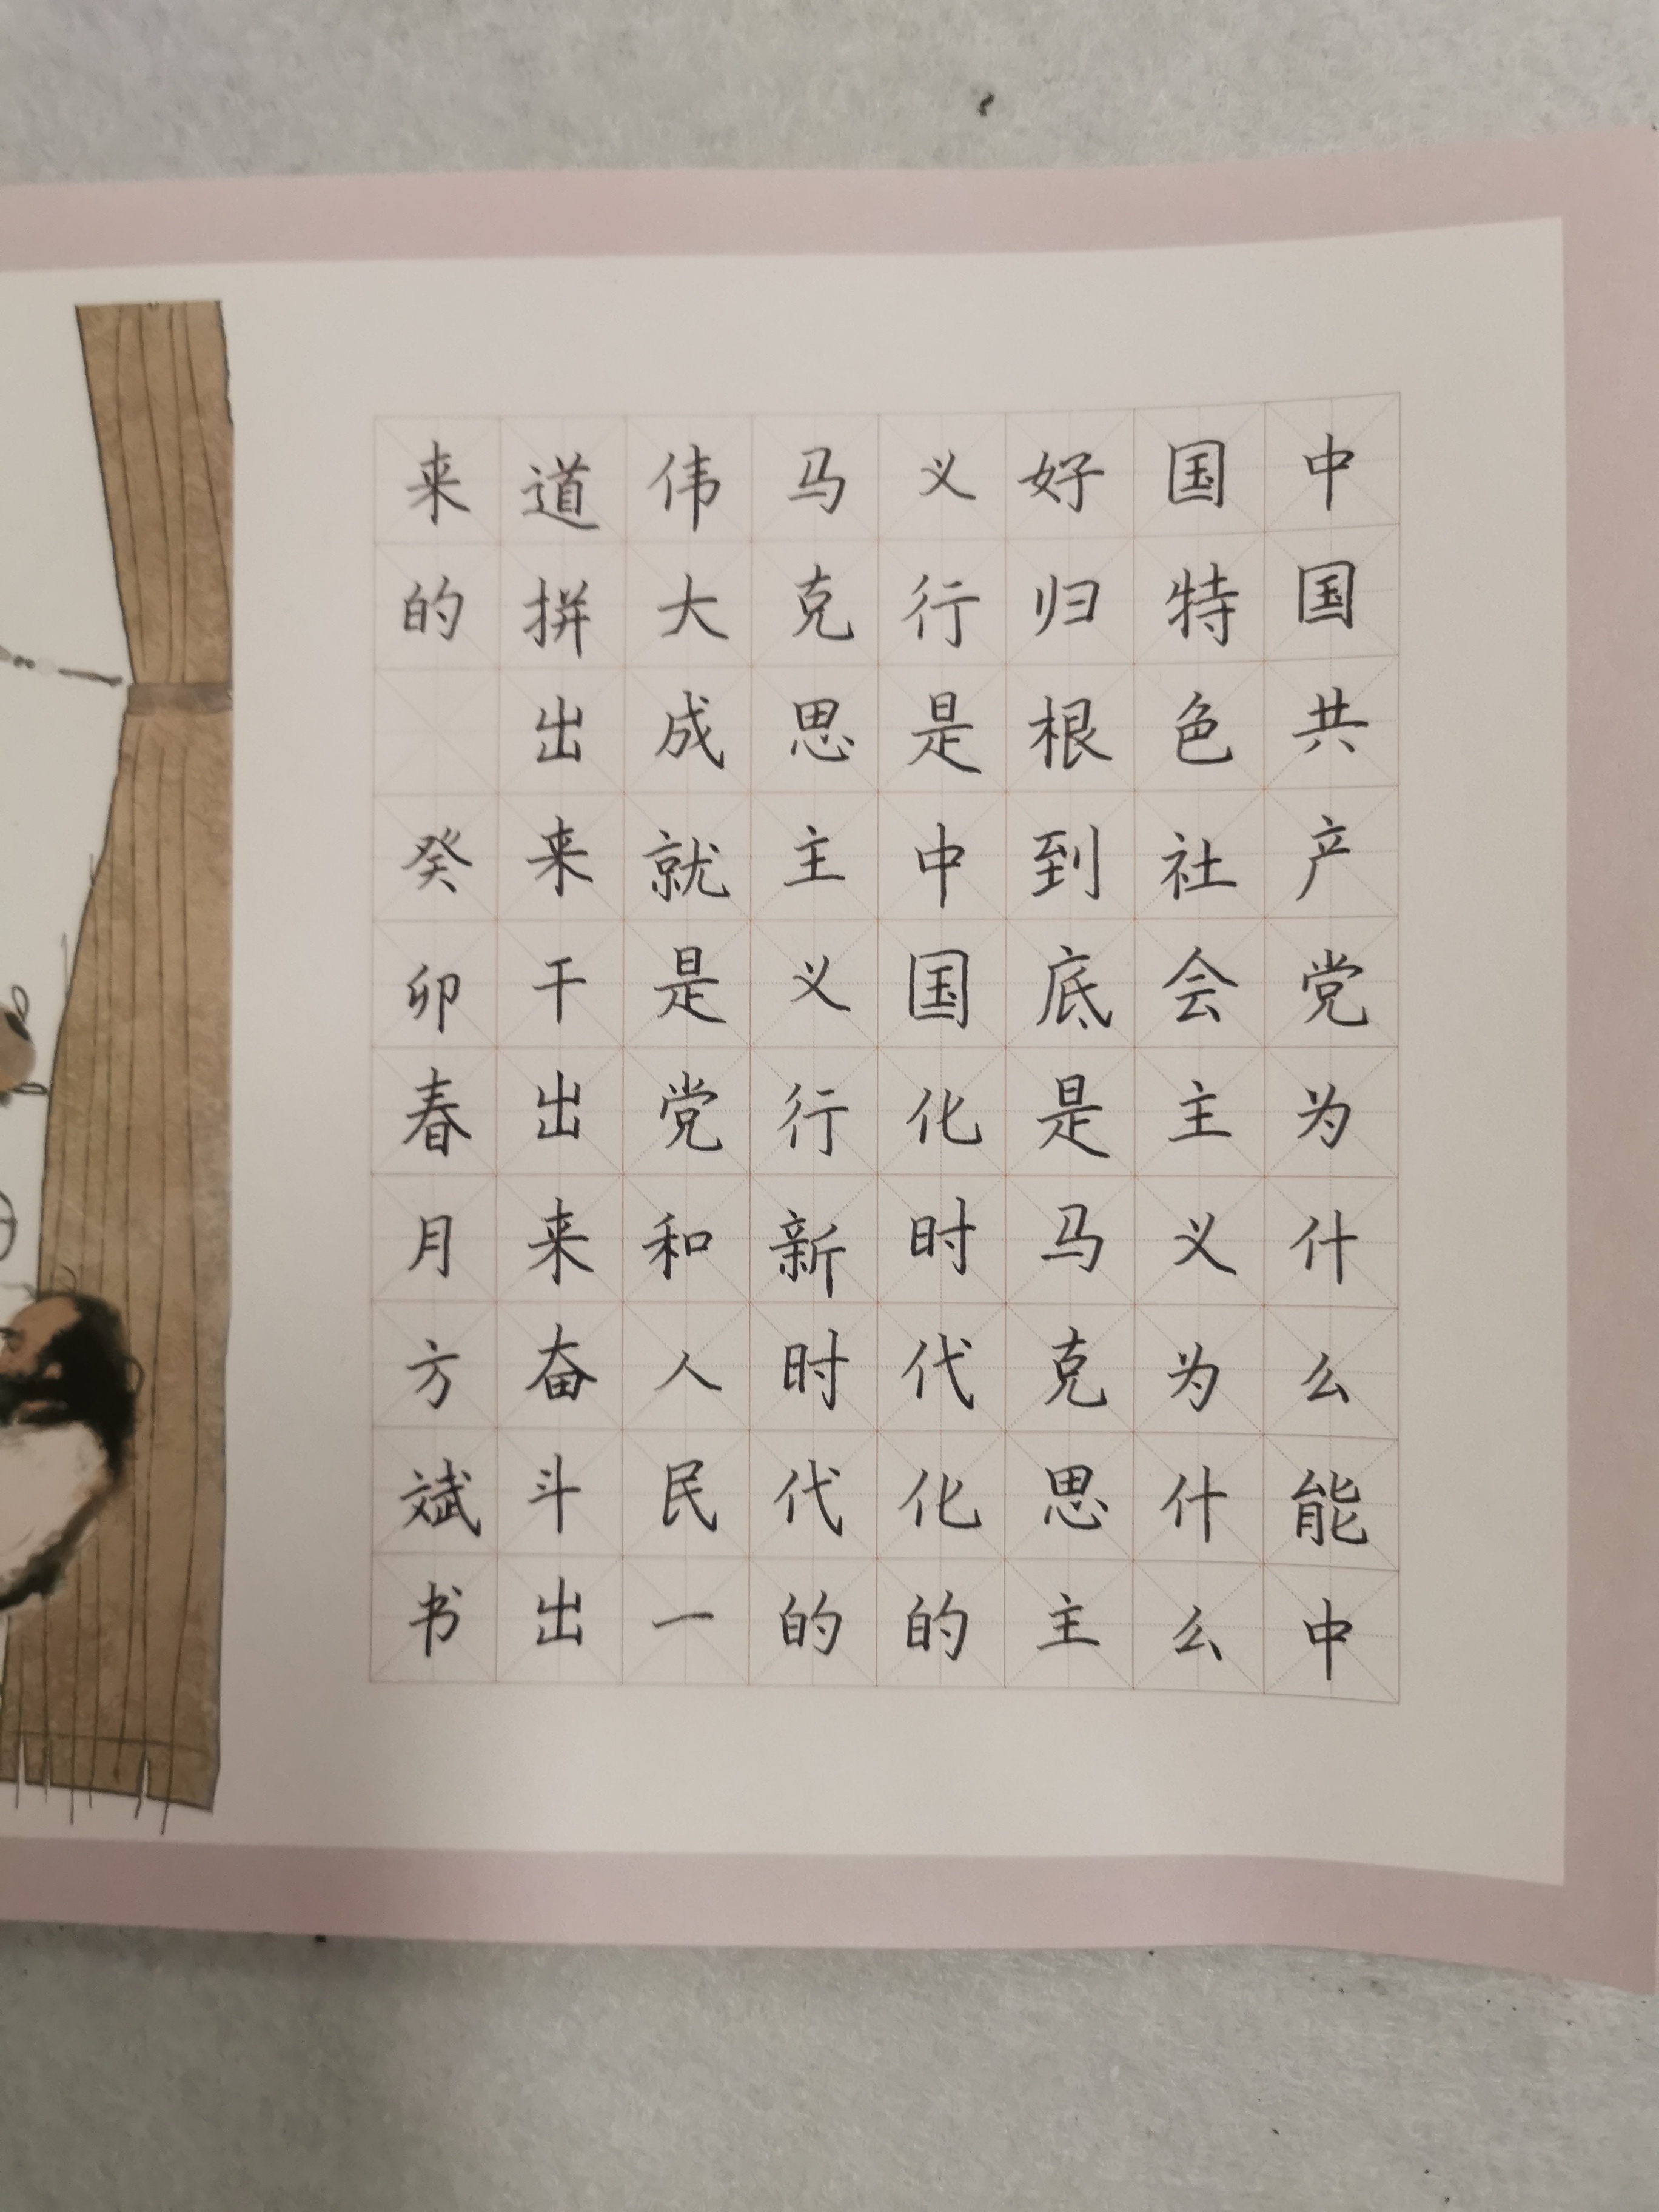 中国共产党为什么能中
国特色社会主义为什么
好归根到底是马克思主
义行是中国化时代化的
马克思主义行新时代的
伟大成就是党和人民一
道拼出来干出来奋斗出
来的 癸卯春月方斌书